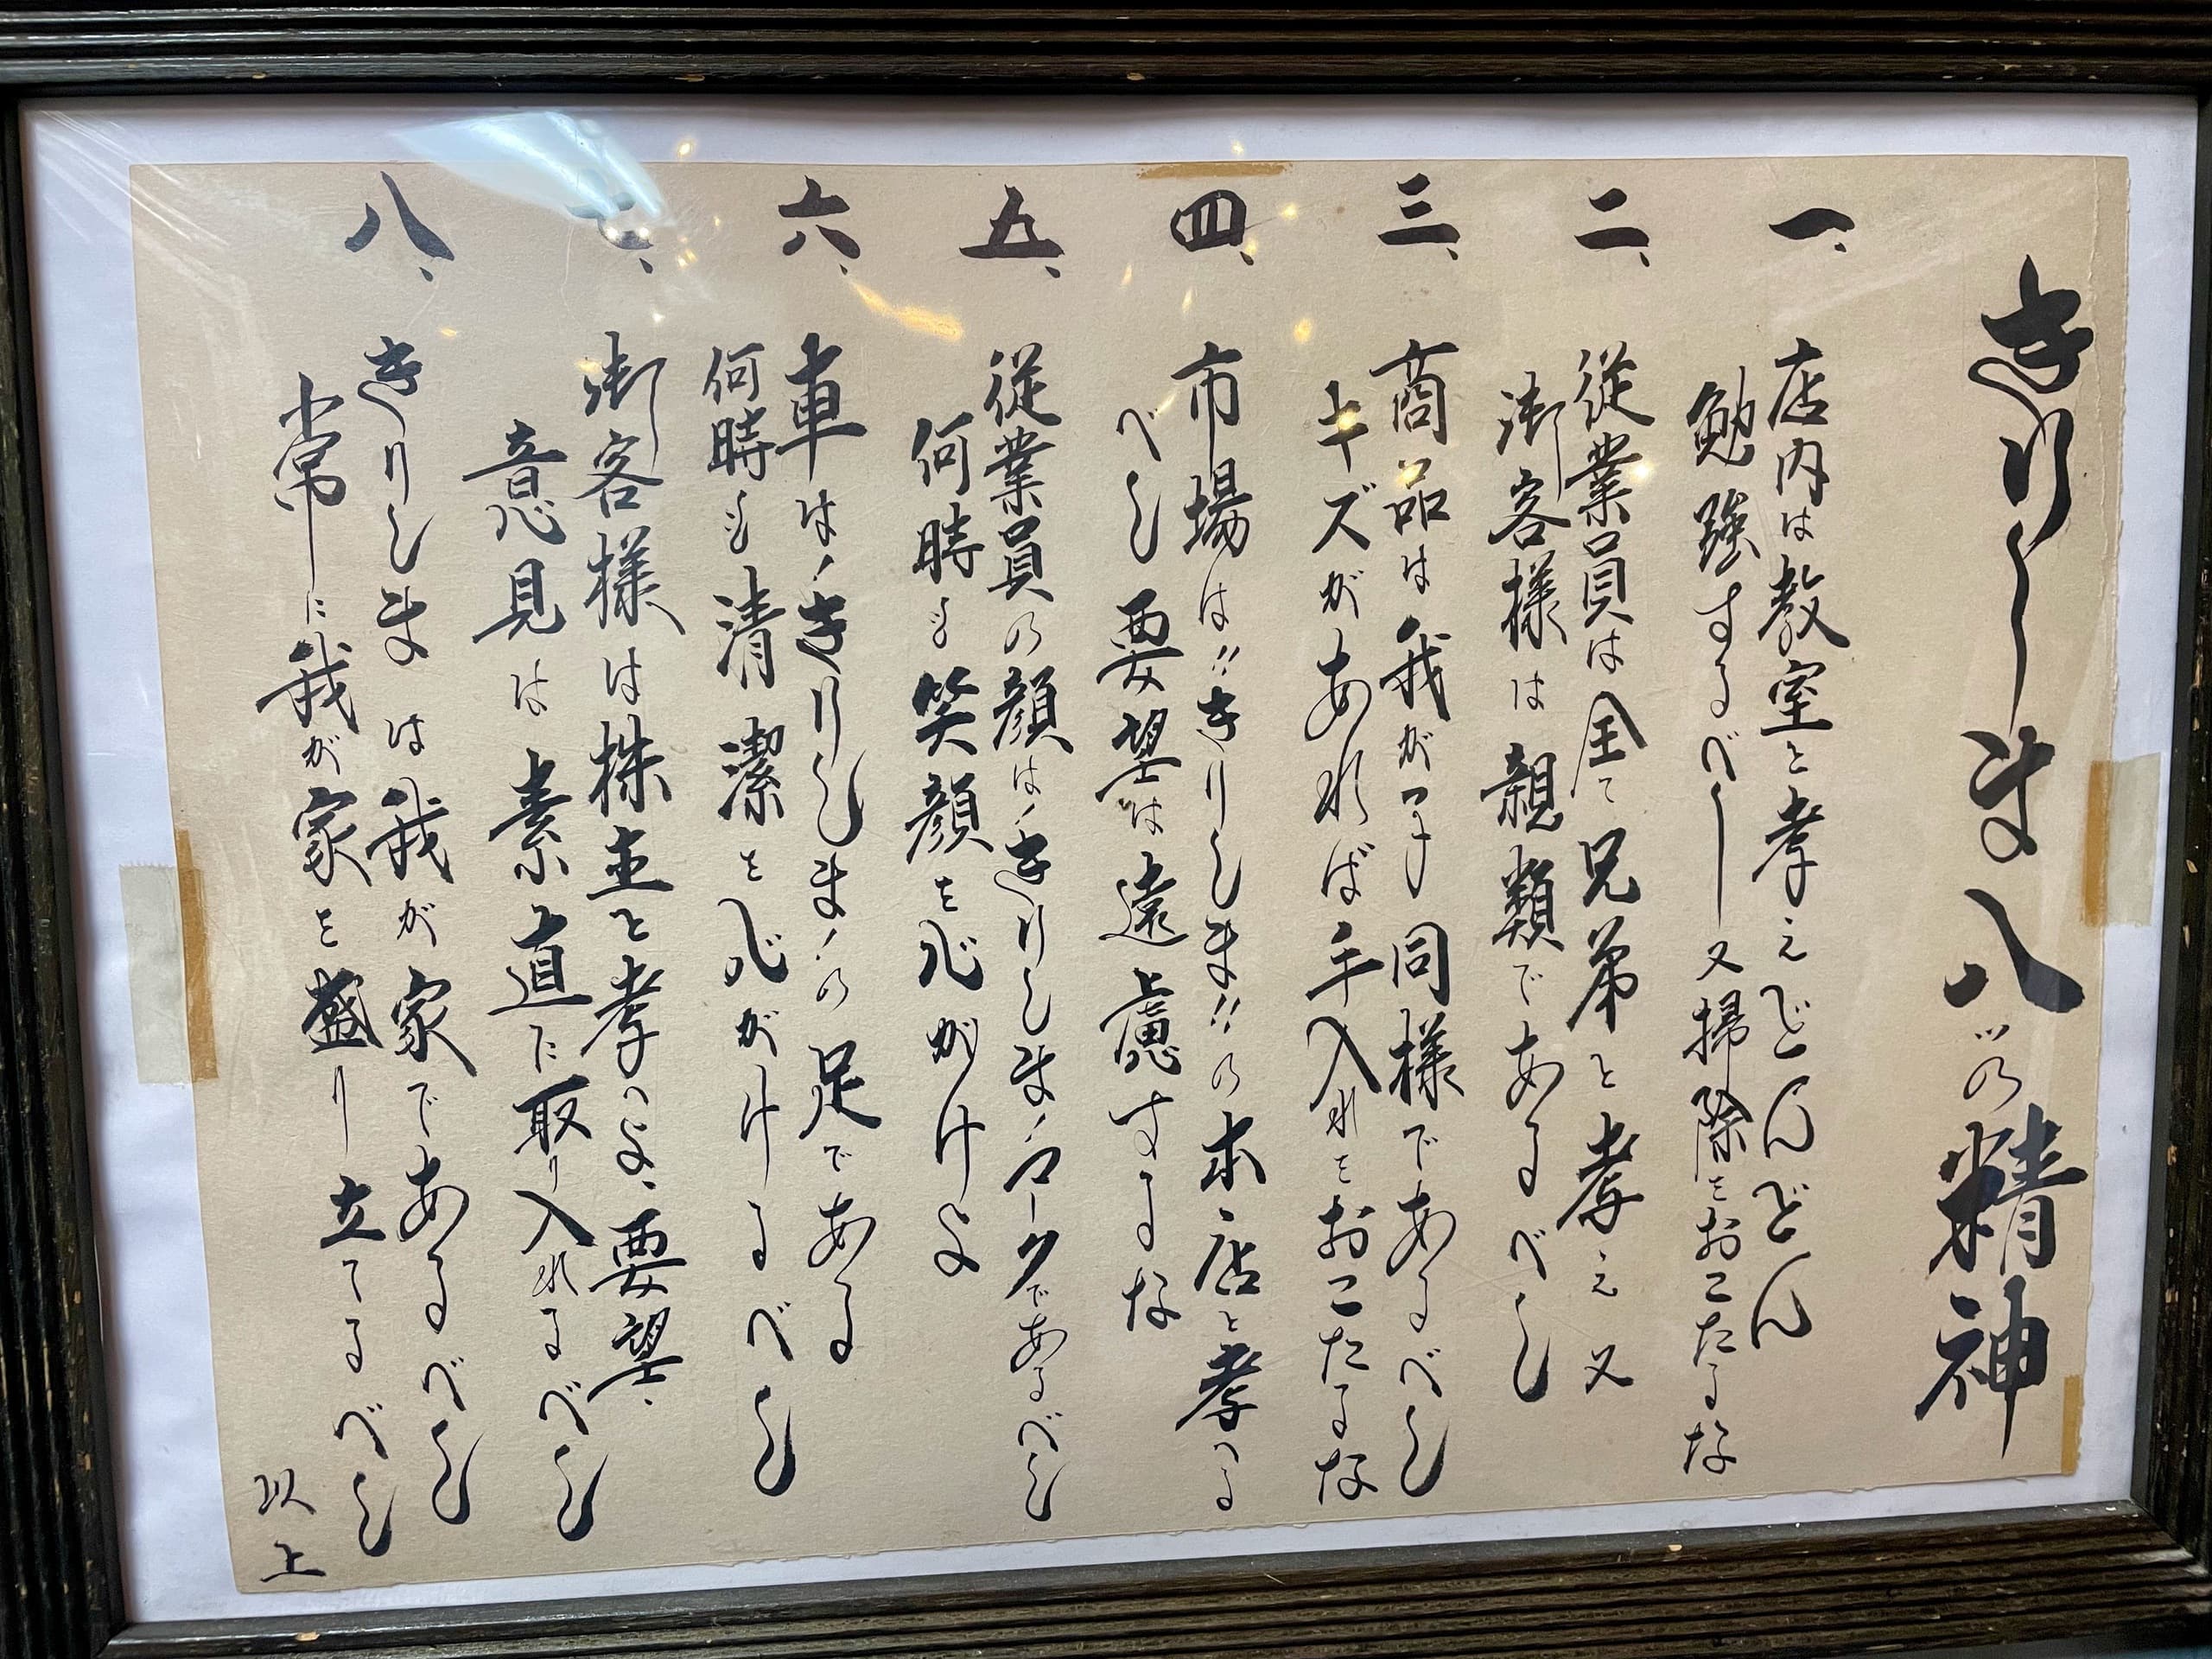 きりしま八ヶの精神
一、店内は教室と考えどんどん
勉強するべし又掃除をおこたるな
二、従業員は全て兄弟と考え又
御客様は親類であるべし
三、商品は我が子同様であるべし
キズがあれば手入れをおこたるな
四、市場は〃きりしま〃の本店と考へる
べし要望は遠慮するな
五、従業員の顔は、きりしま、のマークであるべし
何時も笑顔を心がけよ
六、車は、きりしま、の足である
何時も清潔を心がけるべし
七、御客様は株主と考へよ、要望、
意見は素直に取り入れるべし
八、きりしまは我が家であるべし
常に我が家を盛り立てるべし
以上